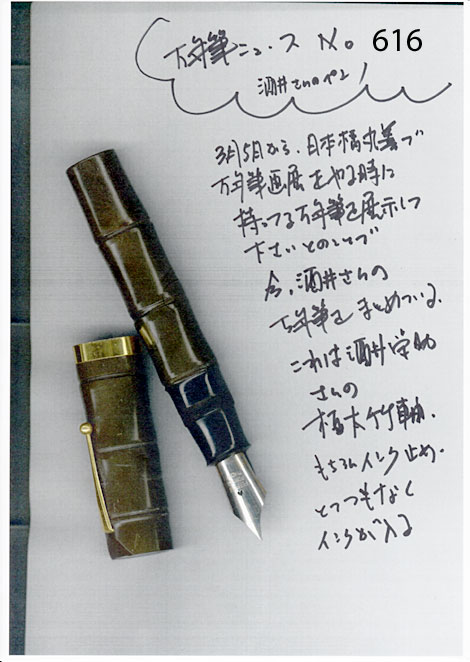 万年筆ニュース No. 616
酒井さんのペン
3月5日から、日本橋丸善で
万年筆画展をやる時に
持ってる万年筆を展示して
下さいとのことで
今、酒井さんの
万年筆をまとめている。
これは酒井栄助
さんの
極太竹軸。
もちろんインク止め。
とてつもなく
インクが入る